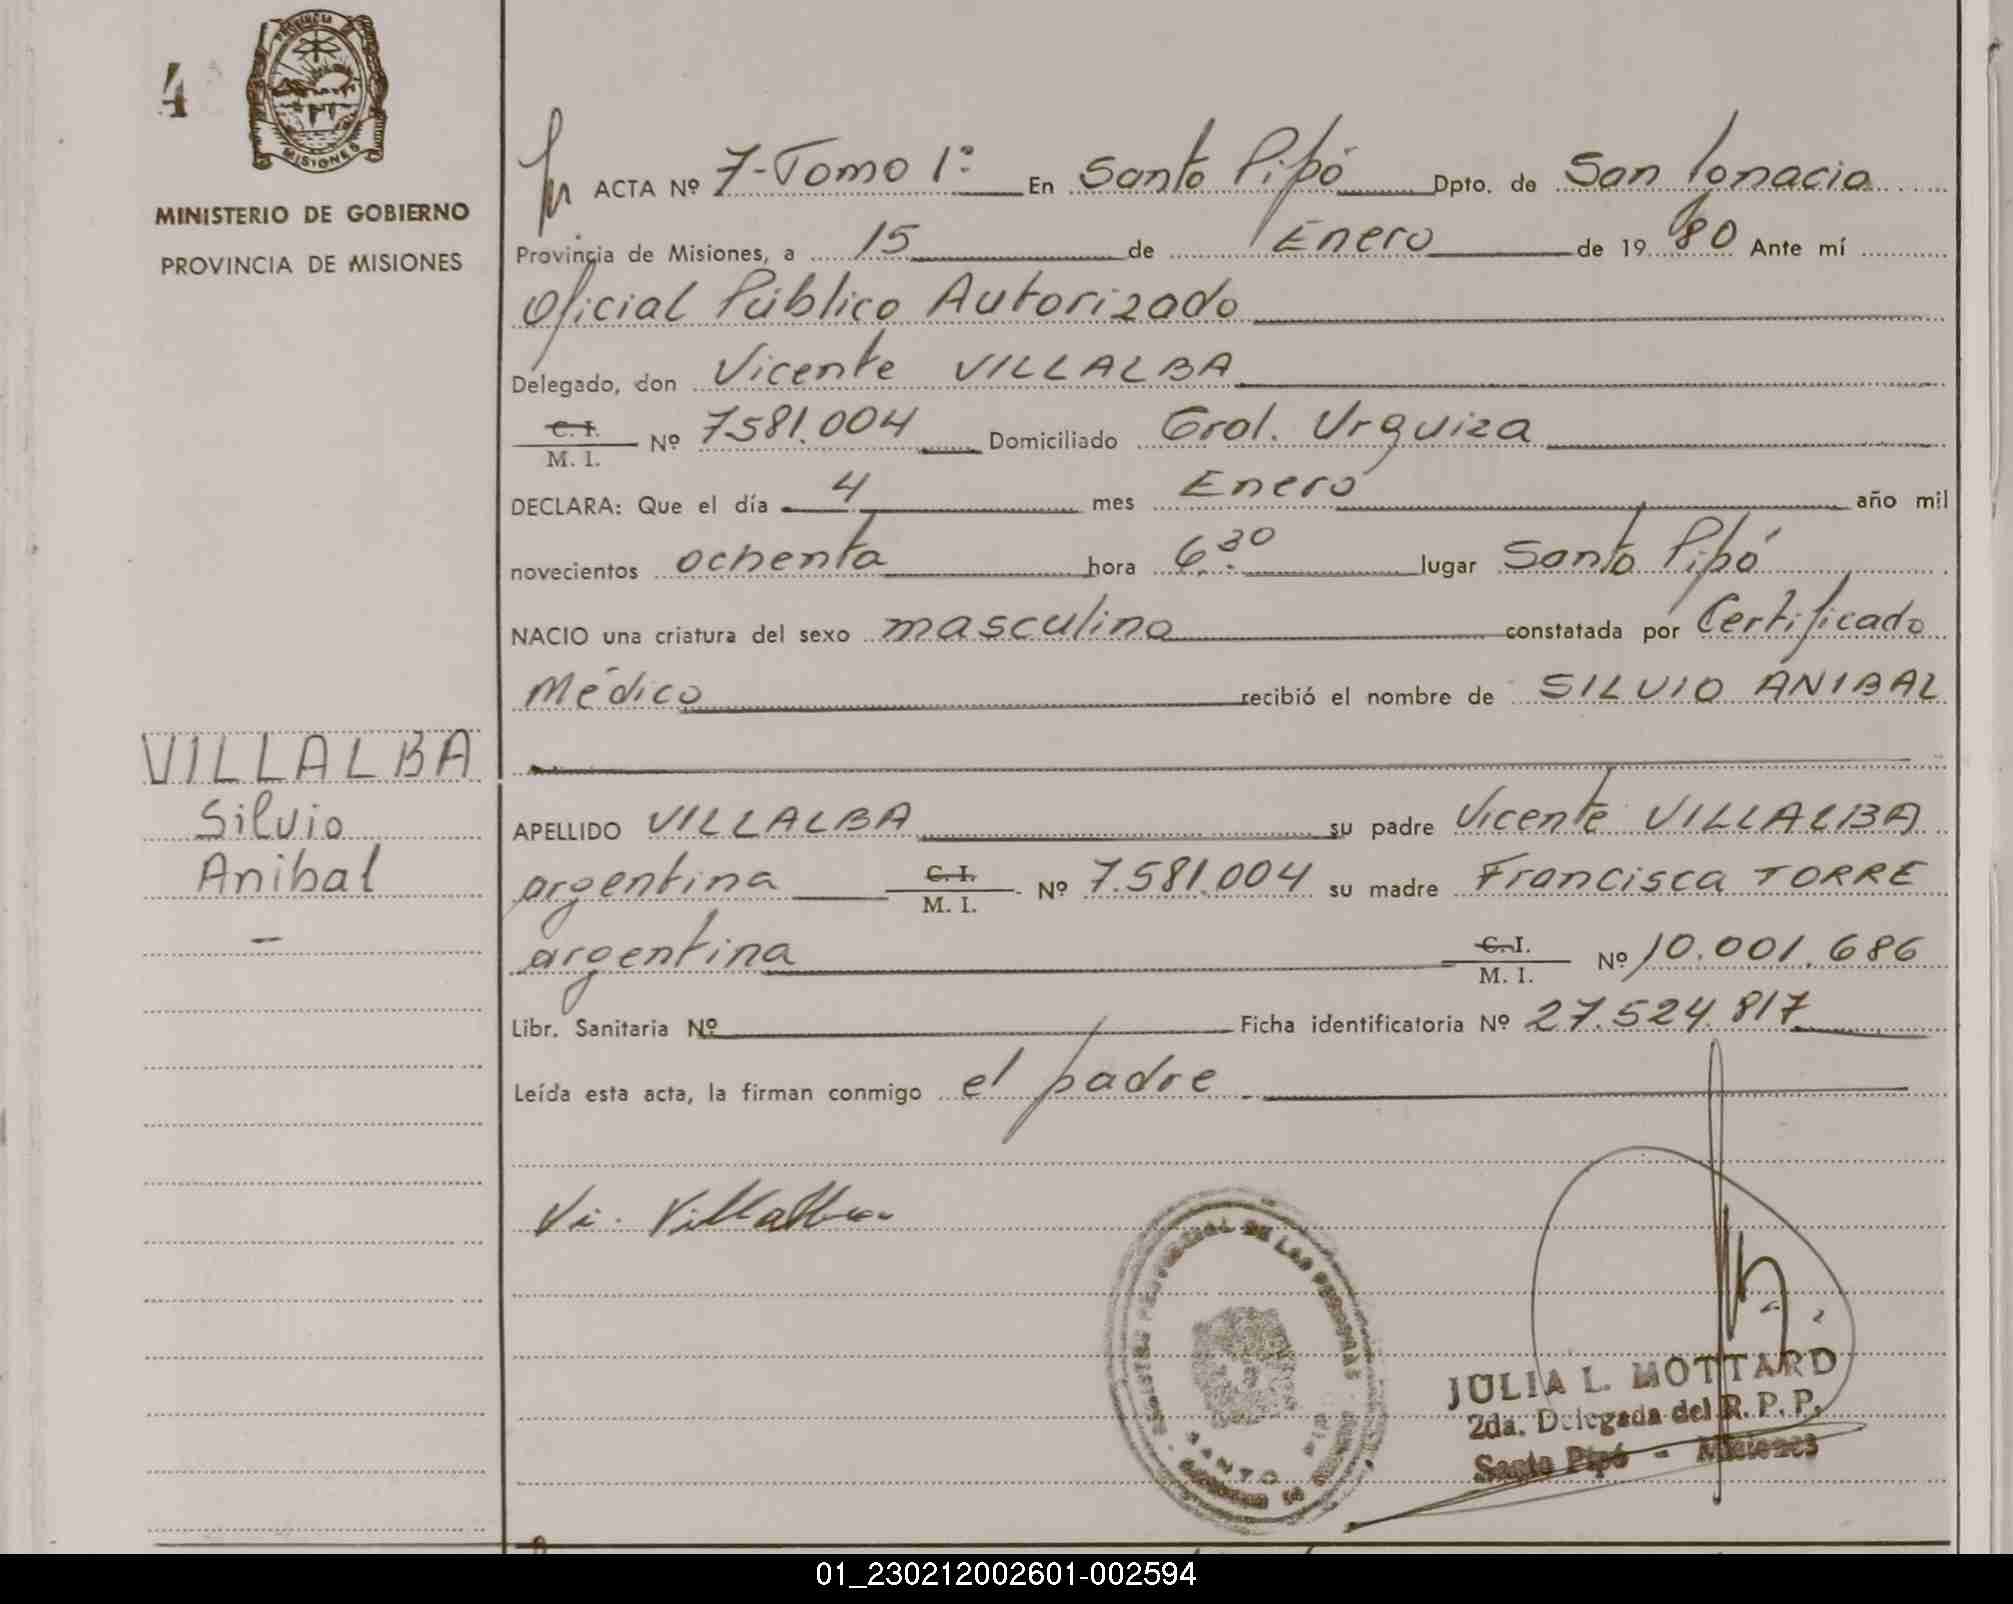 4
PROVINCIA
MISIONES
MINISTERIO DE GOBIERNO
PROVINCIA DE MISIONES
ACTA Nº 7-Tomo 1º En Santo Pipó Dpto. de San Ignacio
Provincia de Misiones, a 15 de Enero de 1980 Ante mí
Oficial Público Autorizado
Delegado, don Vicente VILLALBA
C. I. / M. I. Nº 7581.004 Domiciliado Gral. Urquiza
DECLARA: Que el día 4 mes Enero año mil
novecientos ochenta hora 6.30 lugar Santo Pipó
NACIO una criatura del sexo masculino constatada por Certificado
Médico recibió el nombre de SILVIO ANIBAL
VILLALBA
Silvio
Anibal
-
APELLIDO VILLALBA su padre Vicente VILLALBA
argentina C. I. / M. I. Nº 7.581.004 su madre Francisca TORRE
argentina C. I. / M. I. Nº 10.001.686
Libr. Sanitaria Nº Ficha identificatoria Nº 27.524.817
Leída esta acta, la firman conmigo el padre
Vi. Villalba
DE LAS PERSONAS
SANTO
JULIA L. MOTTARD
2da. Delegada del R. P. P.
Santo Pipó - Misiones
01_230212002601-002594